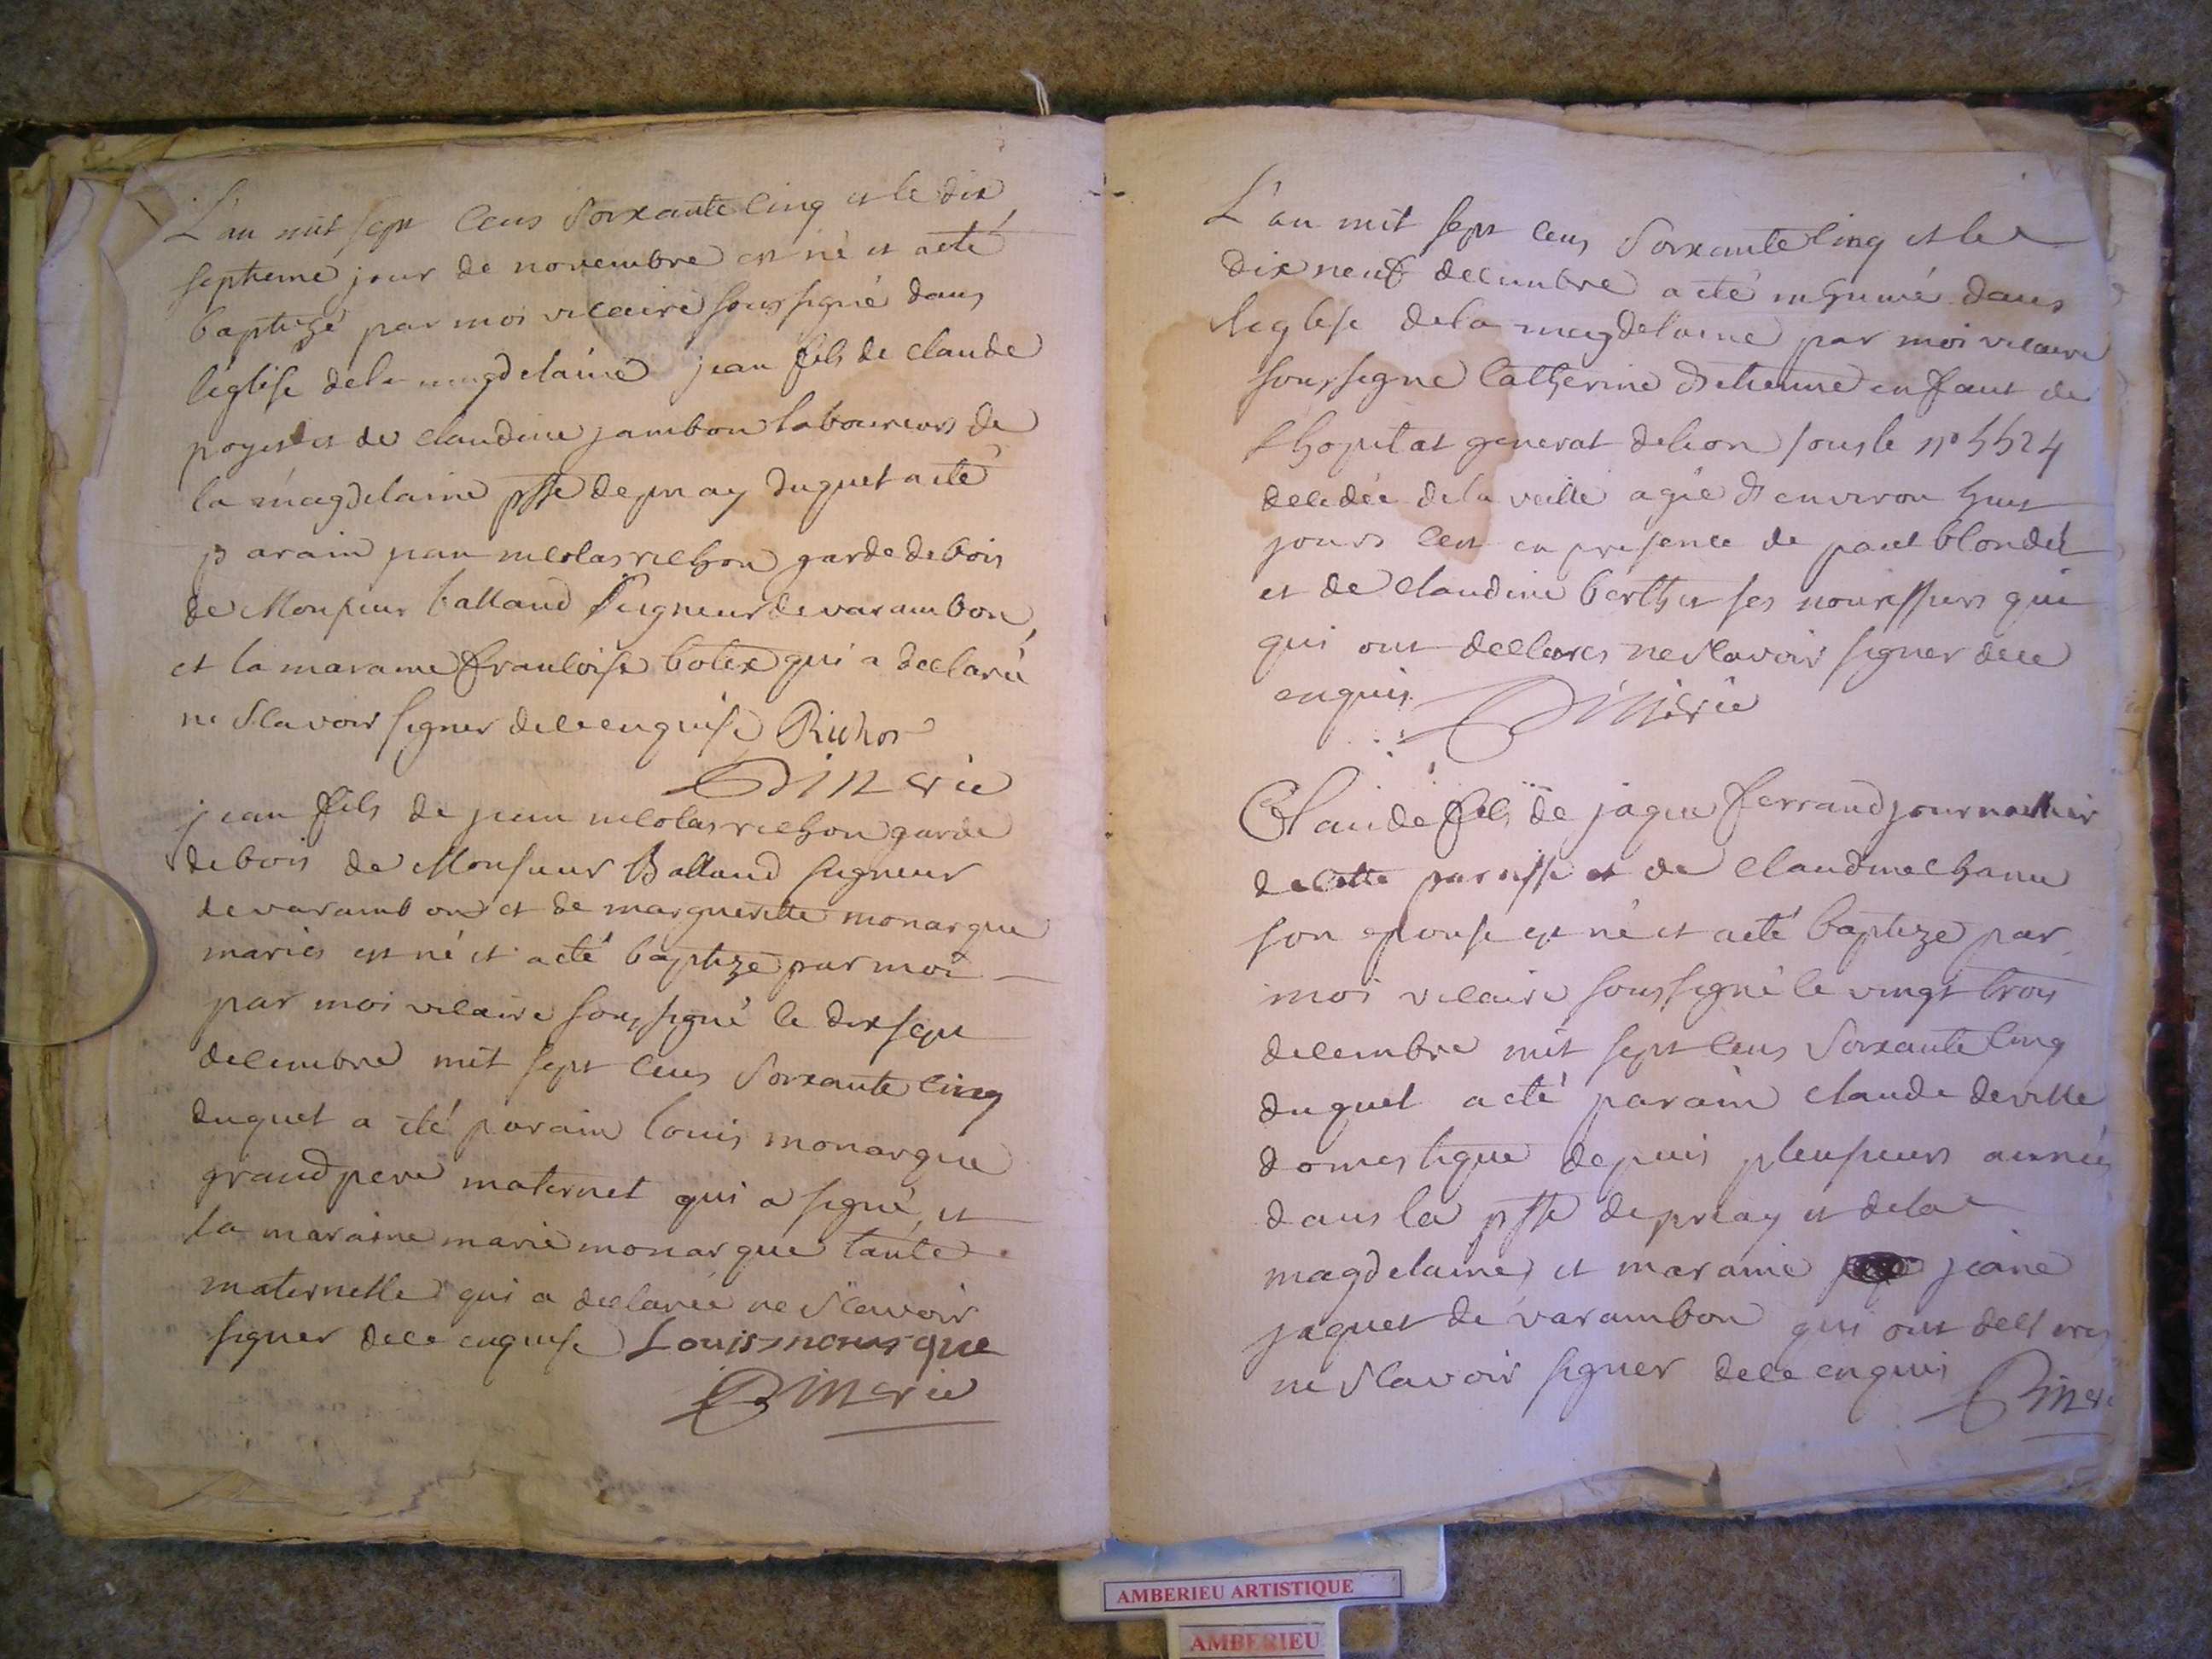 L'an mil sept cens soixante cinq et le dix
septieme jour de novembre est né et a eté
baptizé par moi vicaire soussigné dans
l'eglise de la magdelaine jean fils de claude
poyet et de claudine jambon laboureurs de
la magdelaine psse de priay duquel a eté
parain jean nicolas richon garde de bois
de Monsieur balland seigneur de varambon
et la maraine francoise botex qui a declaré
ne scavoir signer de ce enquise Richon
Dimerie
jean fils de jean nicolas richon garde
de bois de Monsieur Balland seigneur
de varambon et de marguerite monarque
mariés est né et a eté baptizé par moi
par moi vicaire soussigné le dix sept
decembre mil sept cens soixante cinq
duquel a eté parain louis monarque
grand pere maternel qui a signé, et
la maraine marie monarque tante
maternelle qui a declarée ne scavoir
signer de ce enquise Louis monarque
Dimerie
L'an mil sept cens soixante cinq et le
dix neuf decembre a eté inhumé dans
l'eglise de la magdelaine par moi vicaire
soussigné Catherine d'etienne enfant de
l'hopital general de lion sous le no 5524
decedée de la veille agée d'environ huit
jours ce en presence de paul blondet
et de claudine berthet ses nourissiers qui
qui ont declarés ne scavoir signer de ce
enquis Dimerie
Claude fils de jaque ferrand journallier
de cette parisse et de claudine chanu
son epouse est né et a eté baptizé par
moi vicaire soussigné le vingt trois
decembre mil sept cens soixante cinq
duquel a eté parain claude deville
domestique depuis pleusieurs année
dans la psse de priay et de la
magdelaine, et maraine jeane
jaquet de varambon qui ont declarés
ne scavoir signer de ce enquis
Dimerie
AMBERIEU ARTISTIQUE
AMBERIEU